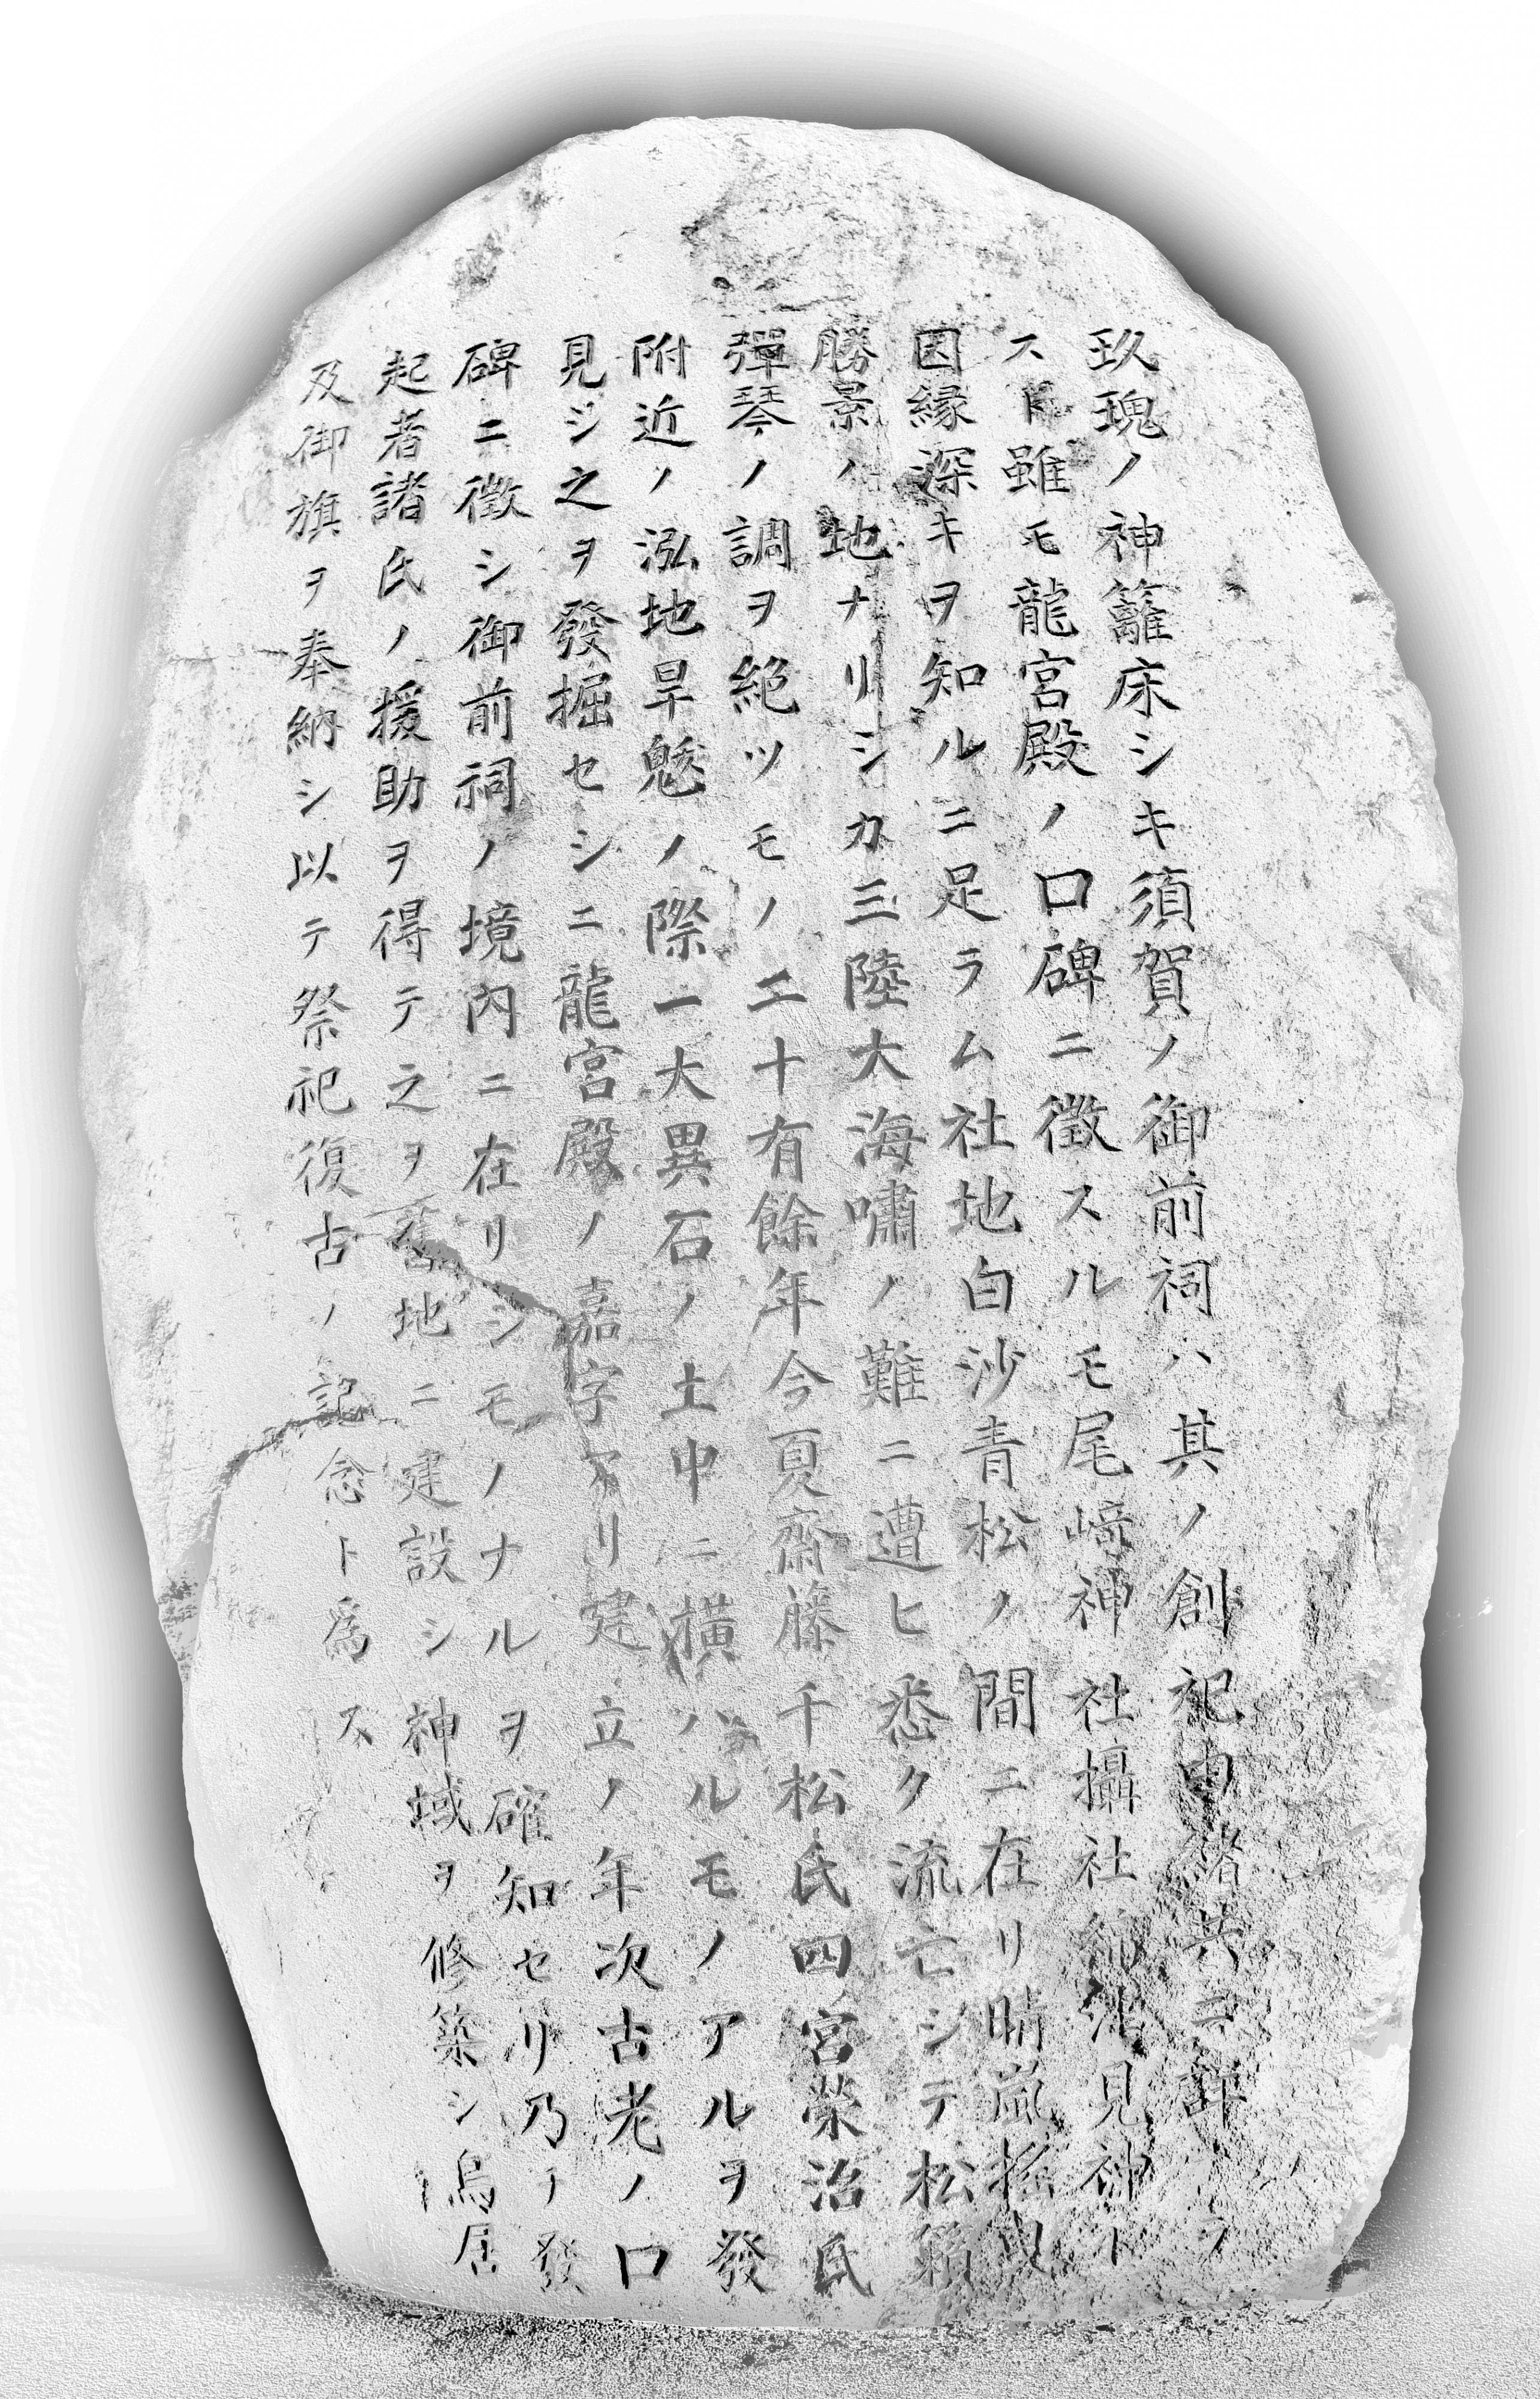 玖瑰ノ神籬床シキ須賀ノ御前祠ハ其ノ創祀由緒共ニ詳ラ
スト雖モ龍宮殿ノ口碑ニ徴スルモ尾﨑神社攝社 見神ト
因縁深キヲ知ルニ足ラム社地白沙青松ノ間ニ在リ晴嵐搖曳
勝景ノ地ナリシカ三陸大海嘯ノ難ニ遭ヒ悉ク流亡シテ松籟
彈琴ノ調ヲ絶ツモノ二十有餘年今夏齋藤千松氏四宮榮治氏
附近ノ泓地旱魃ノ際一大異石ノ土中ニ横ハルモノアルヲ發
見シ之ヲ發掘セシニ龍宮殿ノ嘉字アリ建立ノ年次古老ノ口
碑ニ徴シ御前祠ノ境內ニ在リシモノナルヲ確知セリ乃チ發
起者諸氏ノ援助ヲ得テ之ヲ舊地ニ建設シ神域ヲ修築シ鳥居
及御旗ヲ奉納シ以テ祭祀復古ノ記念ト爲ス